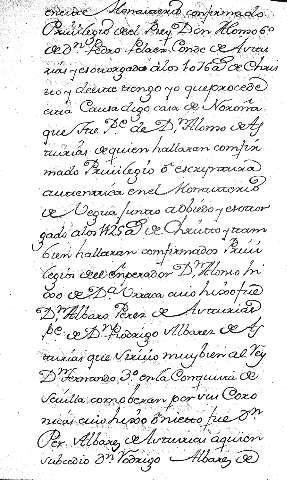 en este Monasterio confirmado
Privilegio del Rey Don Alonso 6º
de Dn Pedro Pelaez Conde de Astu
rias y es otorgado a los 1076 aº de Chris
to y de este tengo yo que procede
esta Causa digo casa de Noroña
que fue Pe de Dn Alonso de As
turias de quien hallaran confir
mado Privilegio o escryptura
autentica en el Monasterio
de Vegua junto a Obiedo y es otor
gado a los 1125 aº de Christo y tam
bien hallaran confirmados Privi
legios del Emperador Dn Alonso hi
xo de Da Urraca cuio hixo fue
Dn Albaro Perez de Asturias
Pe de Dn Rodrigo Albarez de As
turias que sirvio muy bien al Rey
Dn Fernando 3º en la Conquista de
Sevilla como beran por sus Coro
nicas cuio hixo o nietto fue Dn
Per Albarez de Asturias a quien
subcedio Dn Rodrigo Albarez de